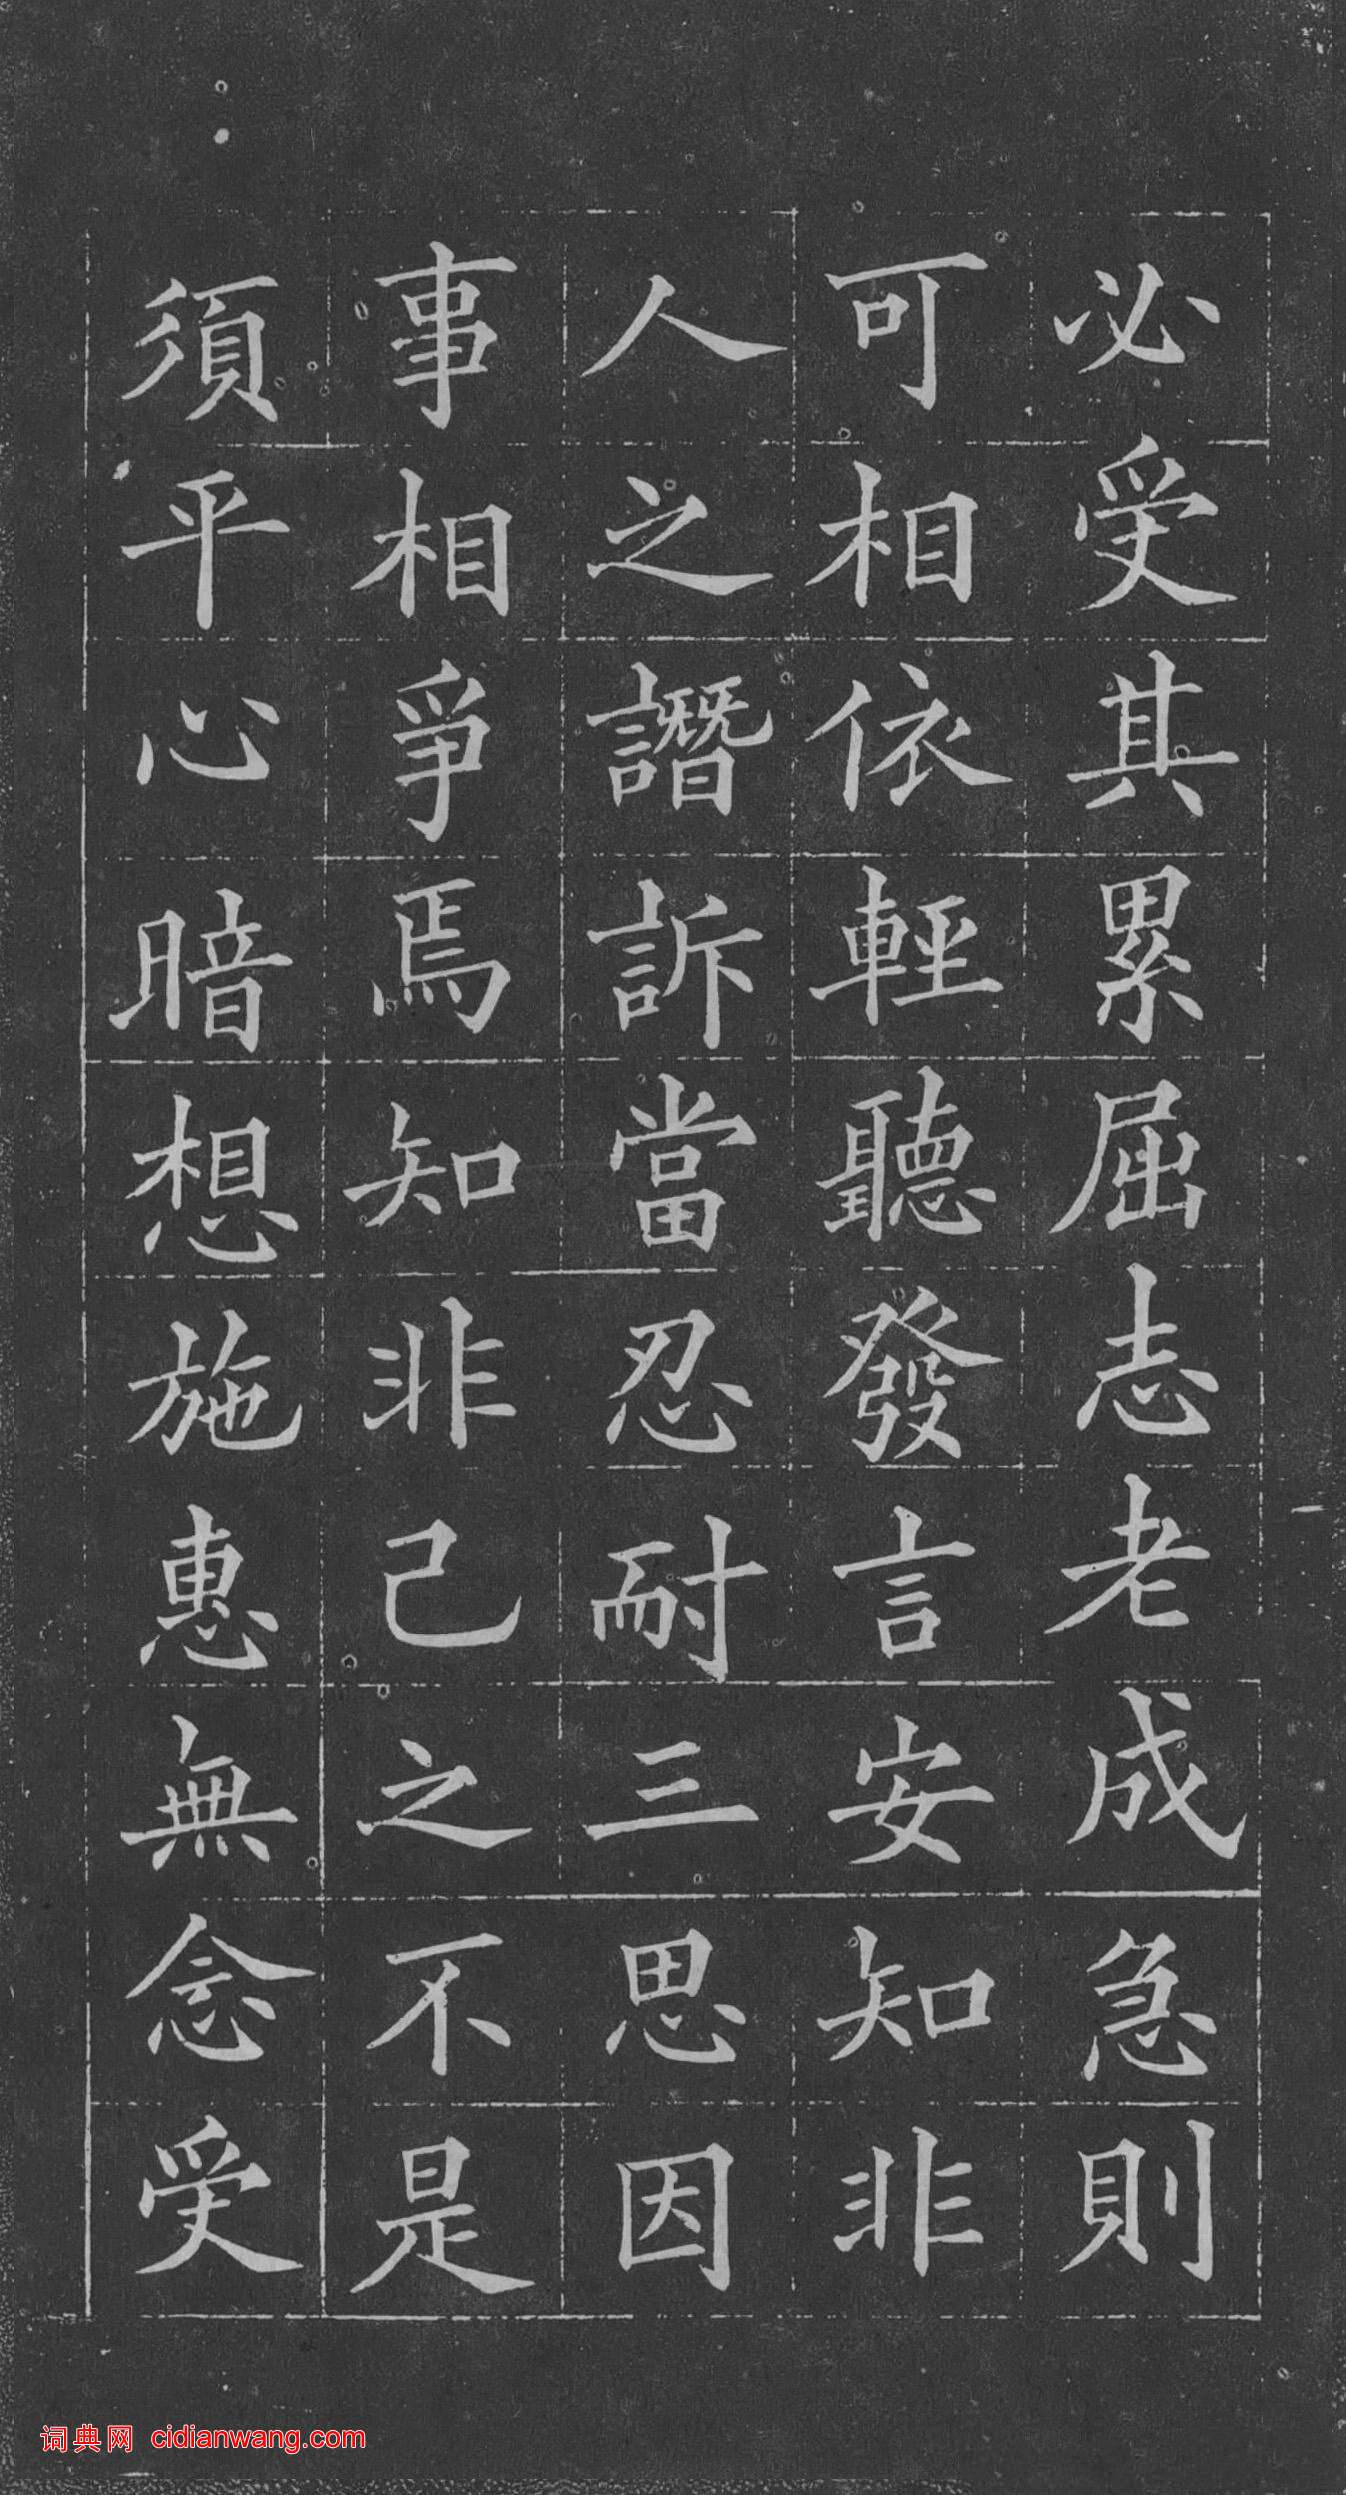 必受其累屈志老成急則
可相依輕聽發言安知非
人之譖訴當忍耐三思因
事相爭焉知非己之不是
須平心暗想施惠無念受
词典网 cidianwang.com